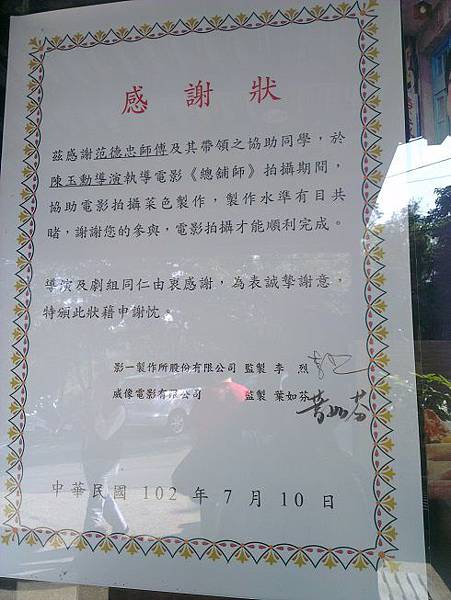 感謝狀
茲感謝范德忠師傅及其帶領之協助同學，於
陳玉勳導演執導電影《總舖師》拍攝期間，
協助電影拍攝菜色製作，製作水準有目共
睹，謝謝您的參與，電影拍攝才能順利完成。
導演及劇組同仁由衷感謝，為表誠摯謝意，
特頒此狀藉申謝忱。
影一製作所股份有限公司 監製 李 烈
威像電影有限公司 監製 葉如芬
葉如芬
中華民國 102 年 7 月 10 日